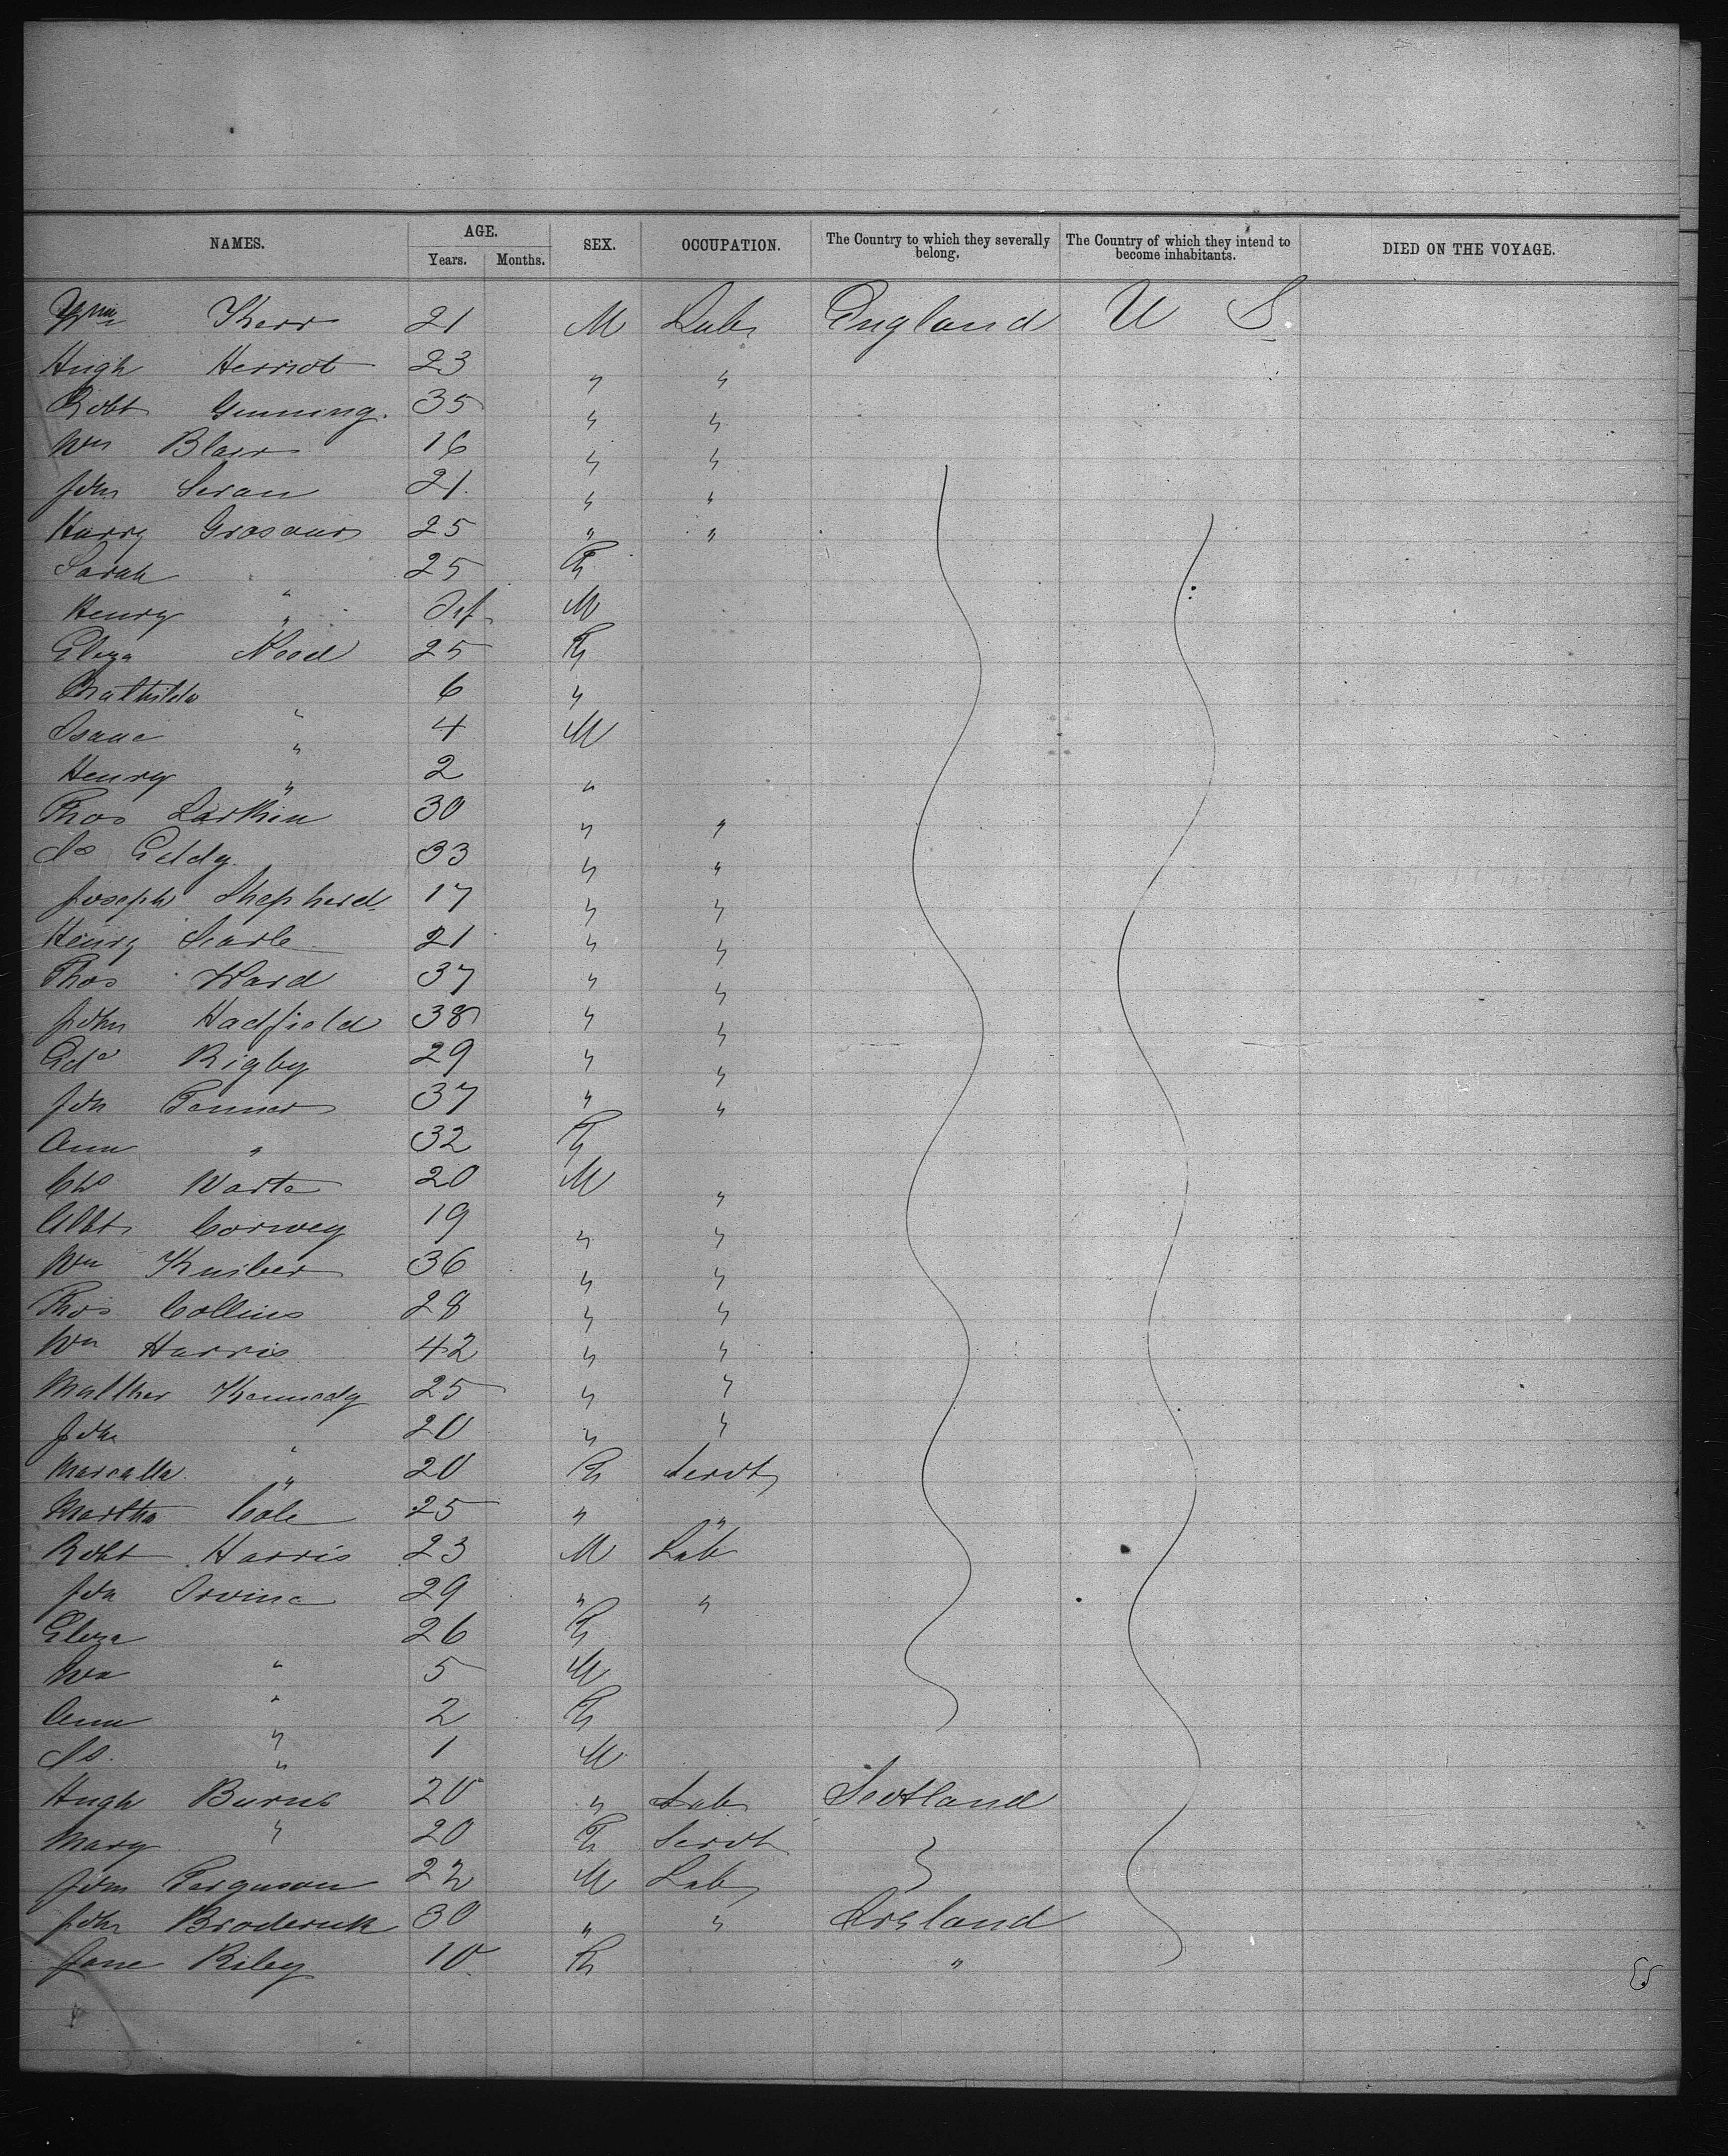 NAMES. AGE. SEX. OCCUPATION. The Country to which they severally belong. The Country of which they intend to become inhabitants. DIED ON THE VOYAGE.
Years. Months.
Wm Kerr 21 M Labr England U S.
Hugh Herriot 23 " "
Robt Gunning. 35 " "
Wm Blair 16 " "
John 21. " "
Harry 25 " "
Sarah " 25 F
Henry " Inf M
Eliza Wood 25 F
Mathilda " 6 "
Isaac " 4 M
Henry " 2 "
Thos Larkin 30 " "
Js Eddy. 33 " "
Joseph Shepherd 17 " "
Henry Searle 21 " "
Thos Ward 37 " "
John Hadfield 38 " "
Edd Rigby 29 " "
Jon 37 " "
Ann " 32 F
20 M "
Albt 19 " "
Wm 36 " "
Thos Collins 28 " "
Wm Harris 42 " "
Matthew Kennedy 25 " "
John " 20 " "
Marcella " 20 F Servt
Martha Cole 25 " "
Robt Harris 23 M Lab
Jon Irvine 29 " "
Eliza " 26 F
Wm " 5 M
Ann " 2 F
Js. " 1 M
Hugh Burns 20 " Lab Scotland
Mary " 20 F Servt
John Ferguson 22 M Lab
John Broderick 30 " " Ireland
Jane Riley 10 F "